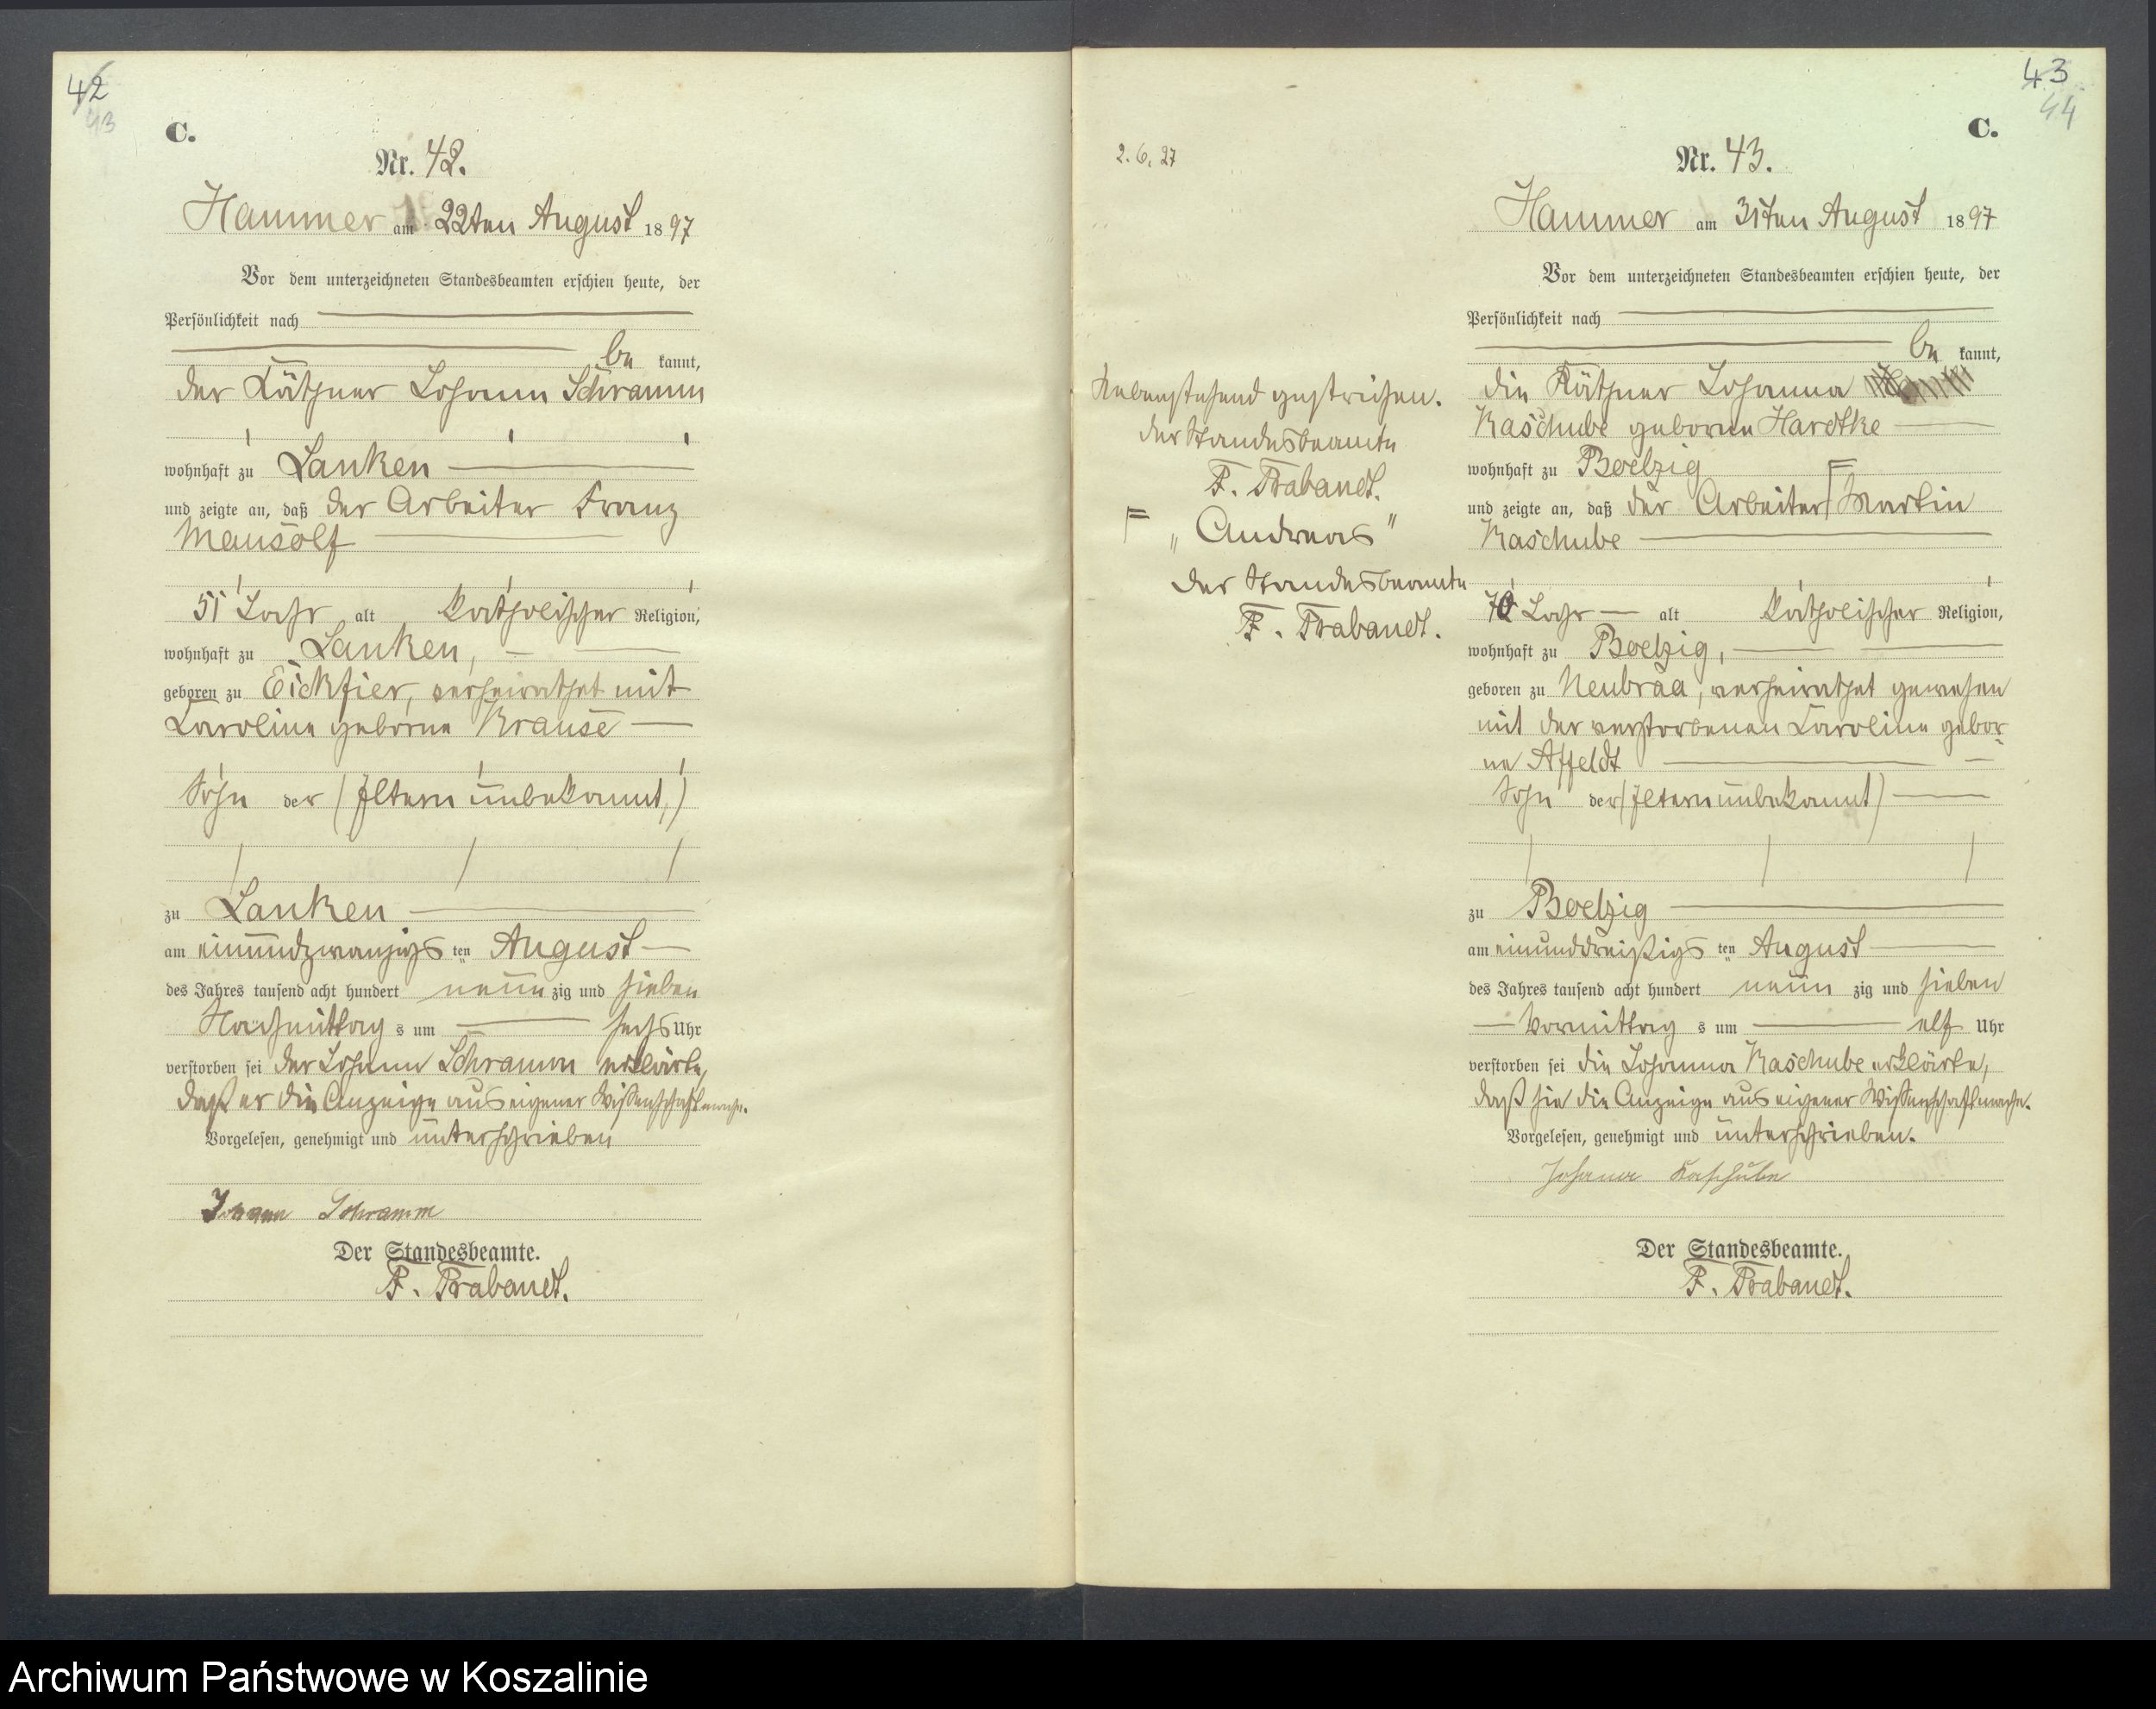 42
43
C.
Nr. 42.
Hammer am 22ten August 1897
Vor dem unterzeichneten Standesbeamten erschien heute, der
Persönlichkeit nach
be kannt,
der Käthner Johann Schramm
wohnhaft zu Lanken
und zeigte an, daß der Arbeiter Franz
Mausolf
51 Jahr alt katholischer Religion,
wohnhaft zu Lanken,
geboren zu Eickfier, verheirathet mit
Karoline geborne Krause
Sohn der (Eltern unbekannt,)
zu Lanken
am einundzwanzigs ten August
des Jahres tausend acht hundert neun zig und sieben
Nachmittag s um sechs Uhr
verstorben sei der Johann Schramm erklärte,
daß er die Anzeige aus eigener Wissenschaft mache.
Vorgelesen, genehmigt und unterschrieben
Johann Schramm
Der Standesbeamte.
F. Brabandt.
43
44
C.
2. 6. 27
Nr. 43.
Hammer am 31ten August 1897
Vor dem unterzeichneten Standesbeamten erschien heute, der
Persönlichkeit nach
be kannt,
die Käthner Johanna
Kaschube geborne Hardtke
wohnhaft zu Boelzig
und zeigte an, daß der Arbeiter Martin
Kaschube
Nebenstehend gestrichen.
Der Standesbeamte
F. Brabandt.
„Andreas"
Der Standesbeamte
F. Brabandt.
70 Jahr alt katholischer Religion,
wohnhaft zu Boelzig,
geboren zu Neubraa, verheirathet gewesen
mit der verstorbenen Karoline gebor-
ne Affeldt
Sohn der (Eltern unbekannt)
zu Boelzig
am einunddreißigs ten August
des Jahres tausend acht hundert neun zig und sieben
Vormittag s um elf Uhr
verstorben sei die Johanna Kaschube erklärte,
daß sie die Anzeige aus eigener Wissenschaft mache.
Vorgelesen, genehmigt und unterschrieben.
Johana Kaschube
Der Standesbeamte.
F. Brabandt.
Archiwum Państwowe w Koszalinie